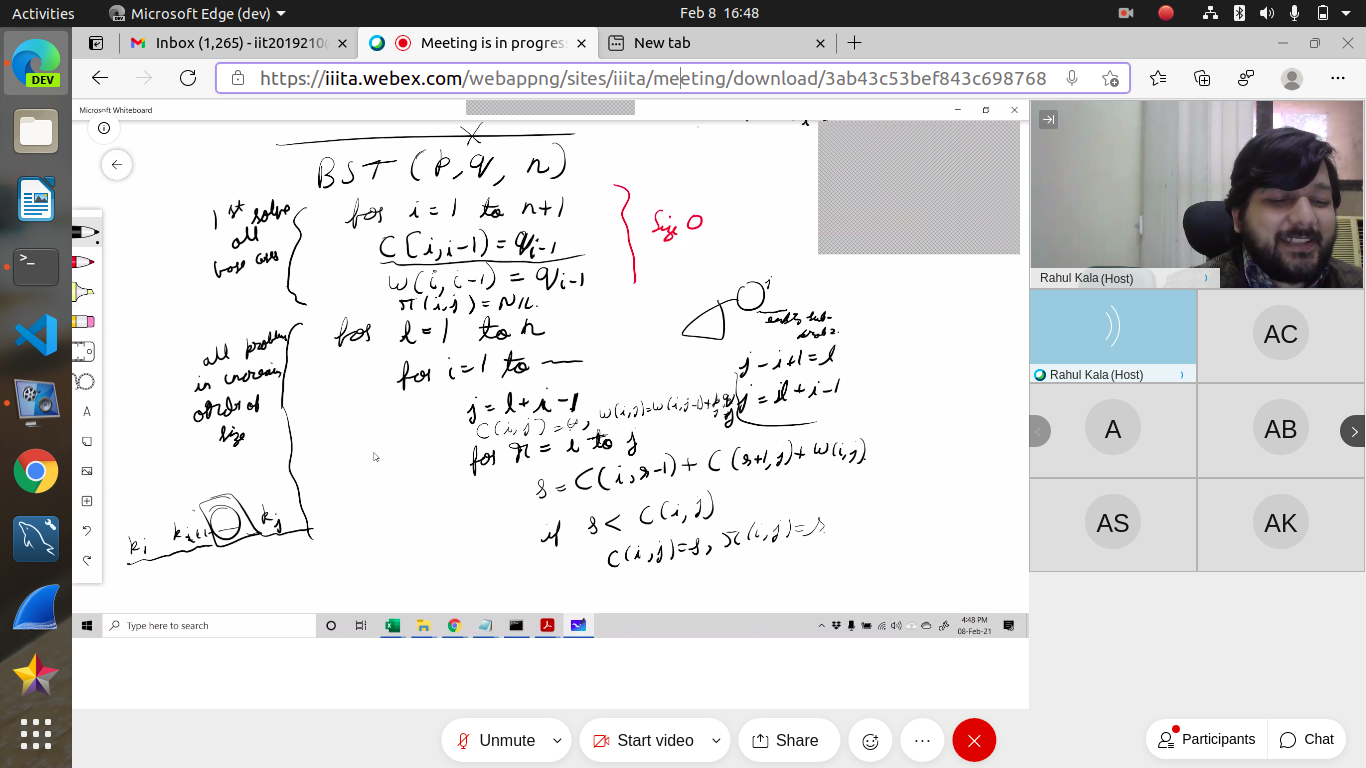 Activities
Microsoft Edge (dev)
Feb 8 16:48
Inbox (1,265) - iit2019210@
Meeting is in progres
New tab
https://iiita.webex.com/webappng/sites/iiita/meeting/download/3ab43c53bef843c698768
DEV
Microsoft Whiteboard
BST (p, q, n)
1st solve
all
base cases
for i = 1 to n+1
C[i, i-1) = qi-1
w(i, i-1) = qi-1
r(i, j) = NIL.
Size 0
all problem
in increasing
order of
size
for l = 1 to n
for i = 1 to —
j = l + i - 1
C(i, j) = ∞, w(i, j) = w(i, j-1) +
for r = i to j
s = C(i, r-1) + C(r+1, j) + w(i, j)
if s < C(i, j)
C(i, j) = s, r(i, j) = r
j - i + 1 = l
j = l + i - 1
ki
kj
A
Type here to search
4:48 PM
08-Feb-21
Rahul Kala (Host)
Rahul Kala (Host)
AC
A
AB
AS
AK
Unmute
Start video
Share
Participants
Chat